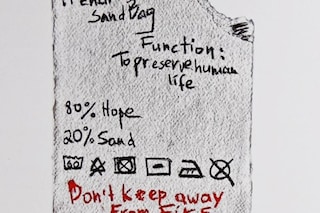 Sand Bag
Function:
To preserve human
life
80% Hope
20% Sand
Don't keep away
From Fire